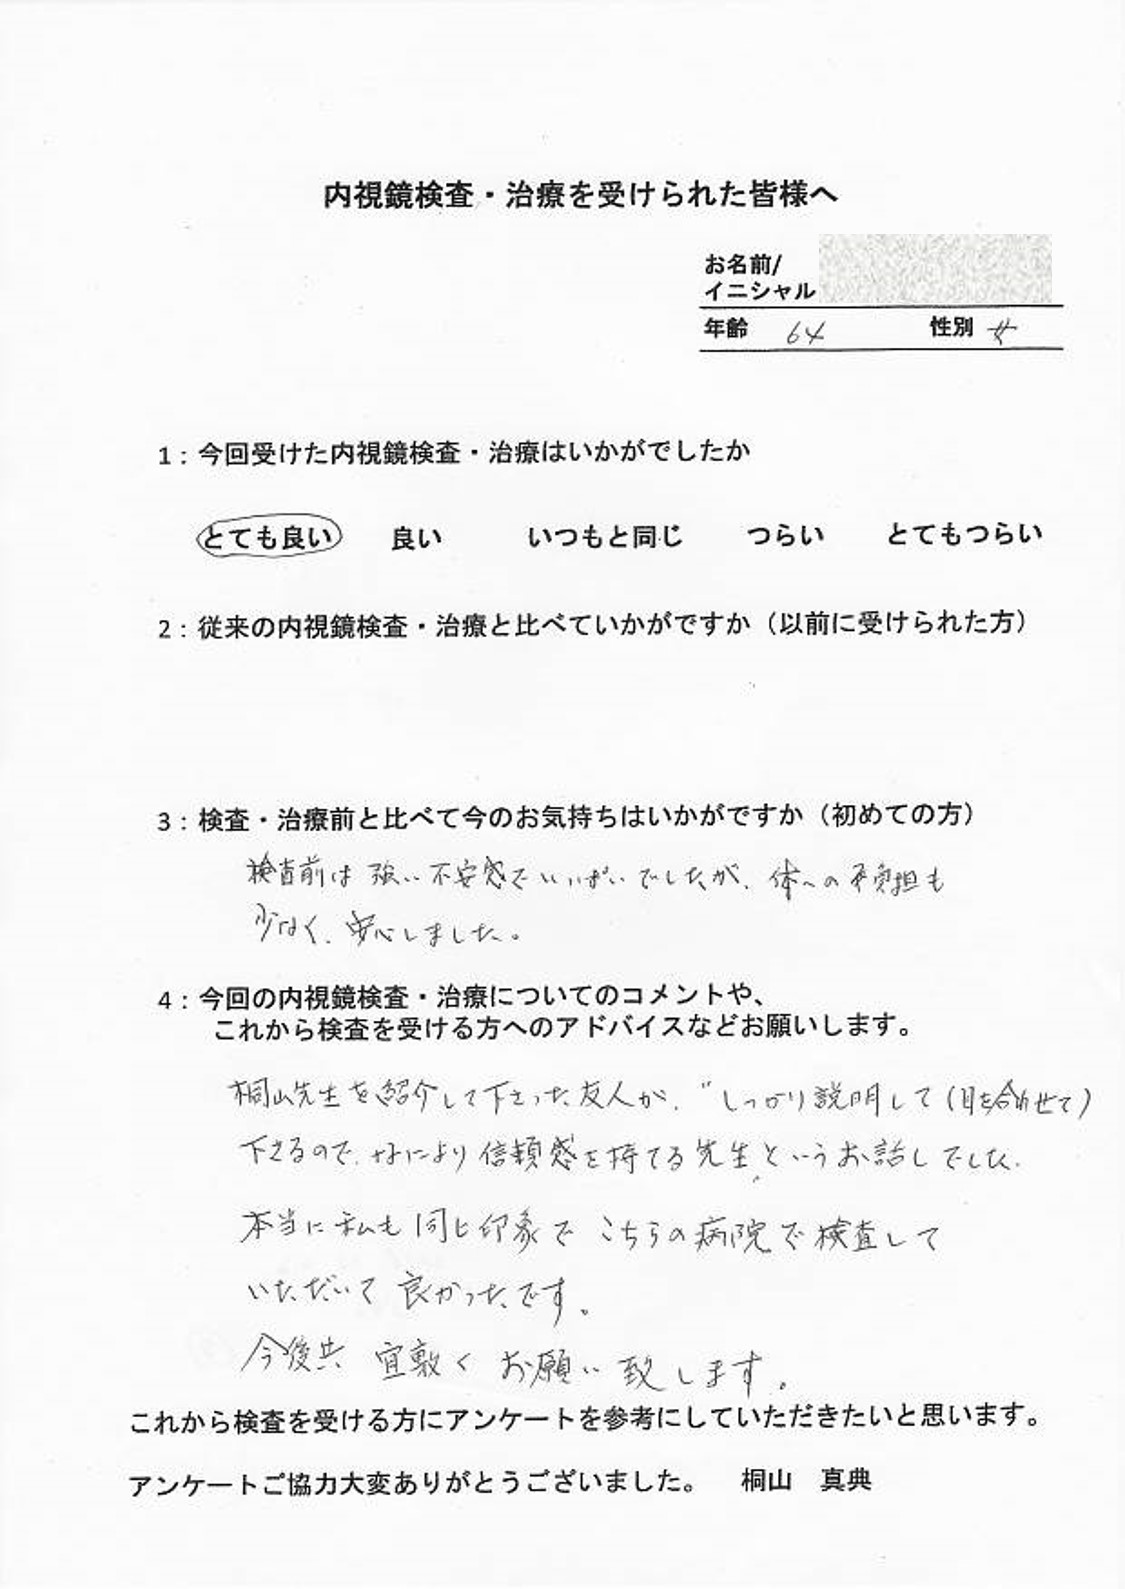 内視鏡検査・治療を受けられた皆様へ
お名前/
イニシャル
年齢 64 性別 女
1：今回受けた内視鏡検査・治療はいかがでしたか
とても良い 良い いつもと同じ つらい とてもつらい
2：従来の内視鏡検査・治療と比べていかがですか（以前に受けられた方）
3：検査・治療前と比べて今のお気持ちはいかがですか（初めての方）
検査前は強い不安感でいっぱいでしたが、体への負担も
少なく、安心しました。
4：今回の内視鏡検査・治療についてのコメントや、
これから検査を受ける方へのアドバイスなどお願いします。
桐山先生を紹介して下さった友人が、"しっかり説明して（目を合わせて）
下さるので、なにより信頼感を持てる先生"というお話しでした。
本当に私も同じ印象でこちらの病院で検査して
いただいて良かったです。
今後共 宜敷くお願い致します。
これから検査を受ける方にアンケートを参考にしていただきたいと思います。
アンケートご協力大変ありがとうございました。 桐山 真典